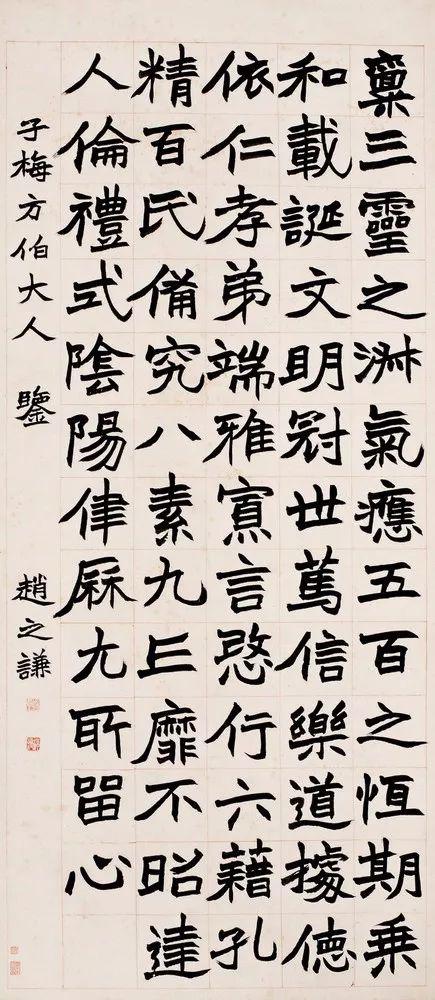 稟三靈之淑氣應五百之恆期乗
和載誕文明冠世篤信樂道據德
依仁孝弟端雅寡言愍行六藉孔
精百氏備究八素九丘靡不昭達
人倫禮式陰陽律厤尤所留心
子梅方伯大人 鑒
趙之謙